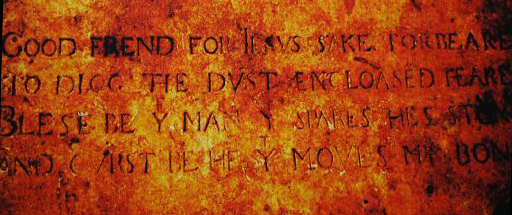 GOOD FREND FOR IESVS SAKE FORBEARE
TO DIGG THE DVST ENCLOASED HEARE
BLESE BE Y MAN Y SPARES HES STON
AND CVRST BE HE Y MOVES MY BON